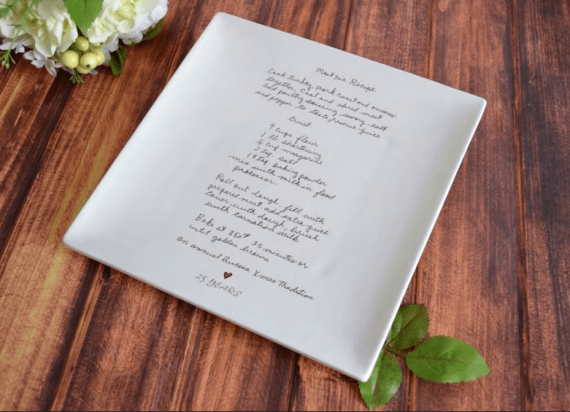 Meat Pie Recipe
Cook turkey, pork roast and onions
together, cool and shred meat
Add poultry seasoning, savory, salt
and pepper to taste/reserve juice
Crust -
9 cups flour
1 lb shortening
1/2 cup margarine
2 tsp salt
1 8 tsp baking powder
mix with milk in food
processor.
Roll out dough, fill with
prepared meat add extra juice
cover with dough, brush
with carnation milk
Bake at 350° 35 minutes or
until golden brown
an annual Xmas Tradition
25 YEARS